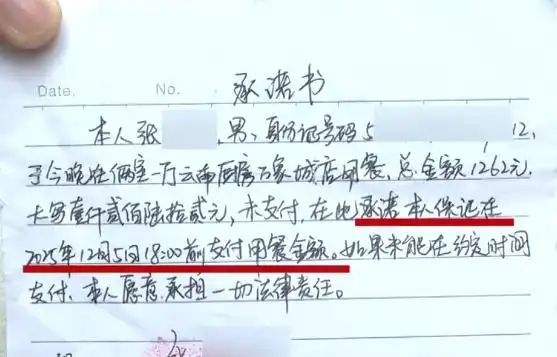 承诺书
Date. No.
本人张 ,男,身份证号码5 12,
于今晚在俩室一厅云南厨房万象城店用餐,总金额1262元.
大写壹仟贰佰陆拾贰元,未支付,在此承诺本人保证在
2025年12月5日18:00前支付用餐金额。如果未能在约定时间
支付、本人愿意承担一切法律责任。